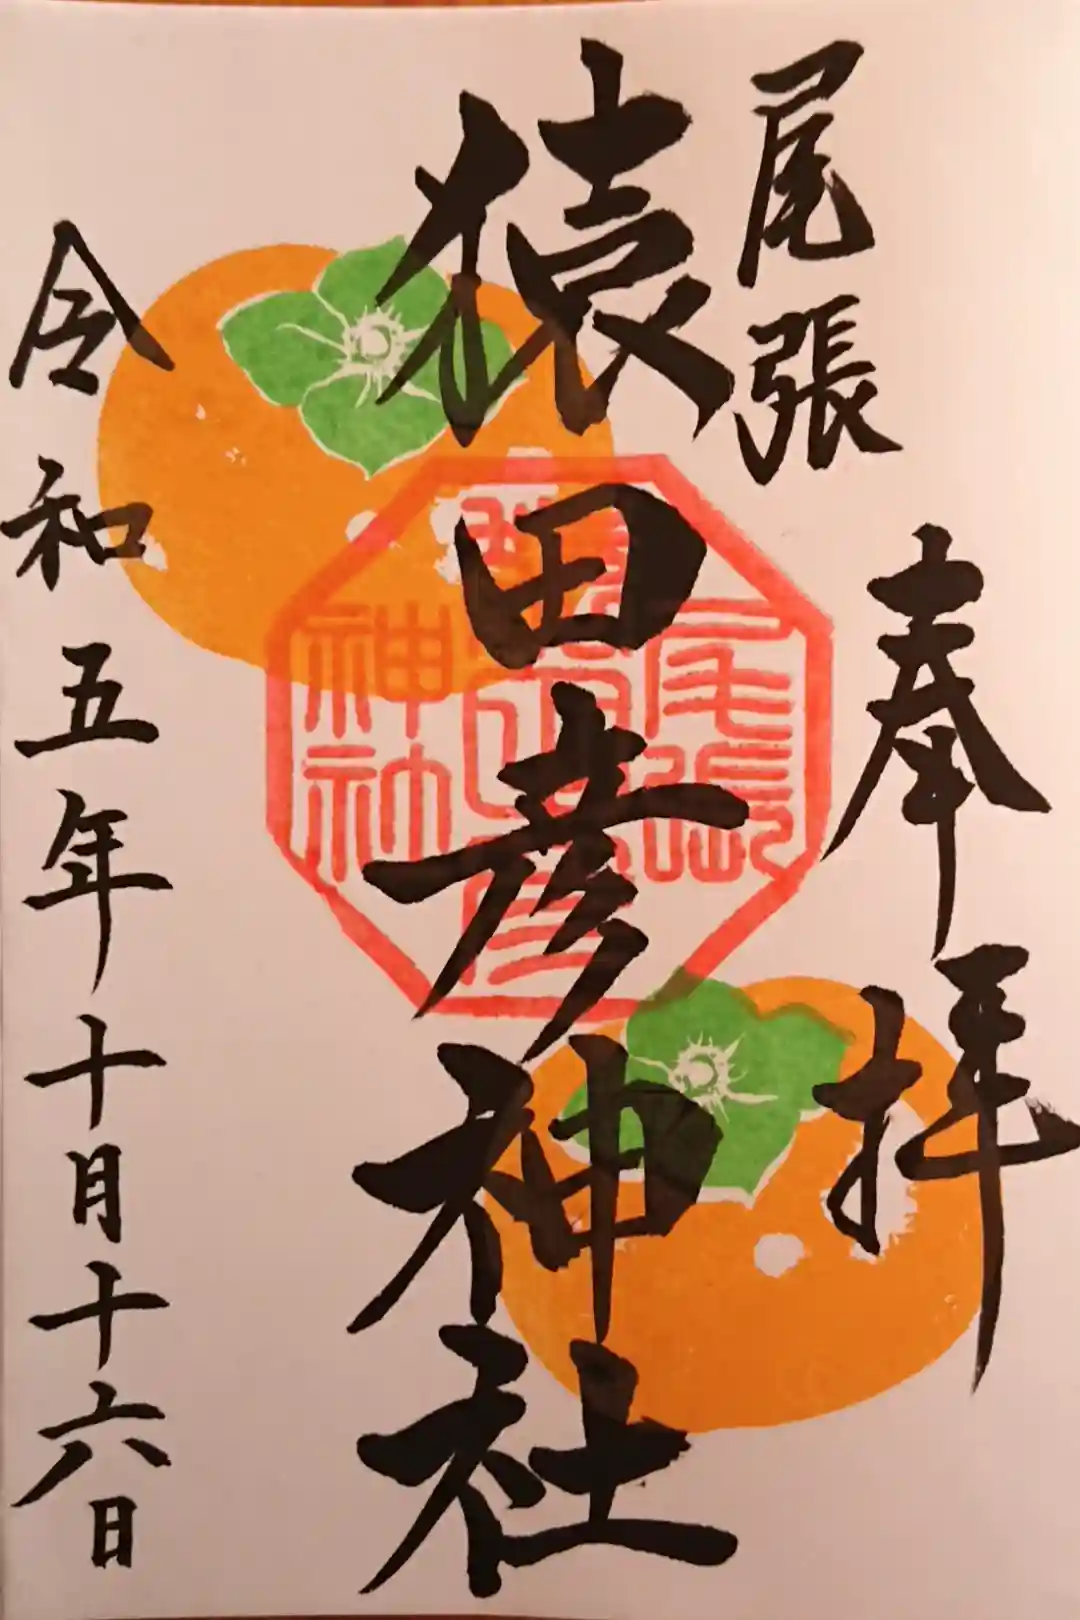 尾張
奉拝
猿田彦神社
尾張
猿田彦
神社
令和五年十月十六日